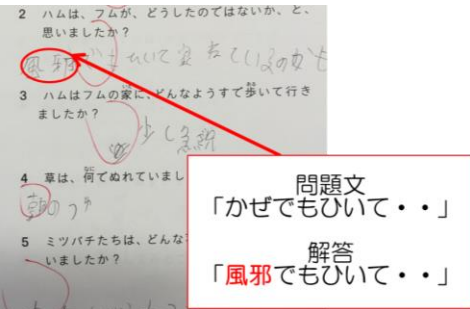 2 ハムは、フムが、どうしたのではないか、と、
思いましたか？
風邪でもひいて
3 ハムはフムの家に、どんなようすで歩いて行き
ましたか？
少し急
4 草は、何でぬれていまし
朝のつ
5 ミツバチたちは、どんな
いましたか？
問題文
「かぜでもひいて・・」
解答
「風邪でもひいて・・」